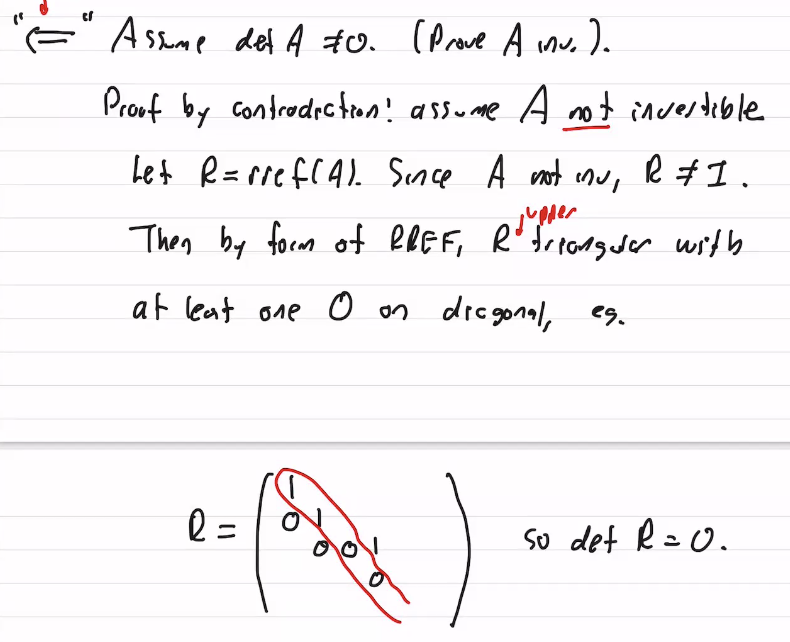 "⇐" Assume det A ≠ 0. (Prove A inv.).
Proof by contradiction: assume A not invertible
Let R = rref(A). Since A not inv, R ≠ I.
upper
Then by form of RREF, R triangular with
at least one 0 on diagonal, eg.
1
R = 0 1
0 0 1 so det R = 0.
0